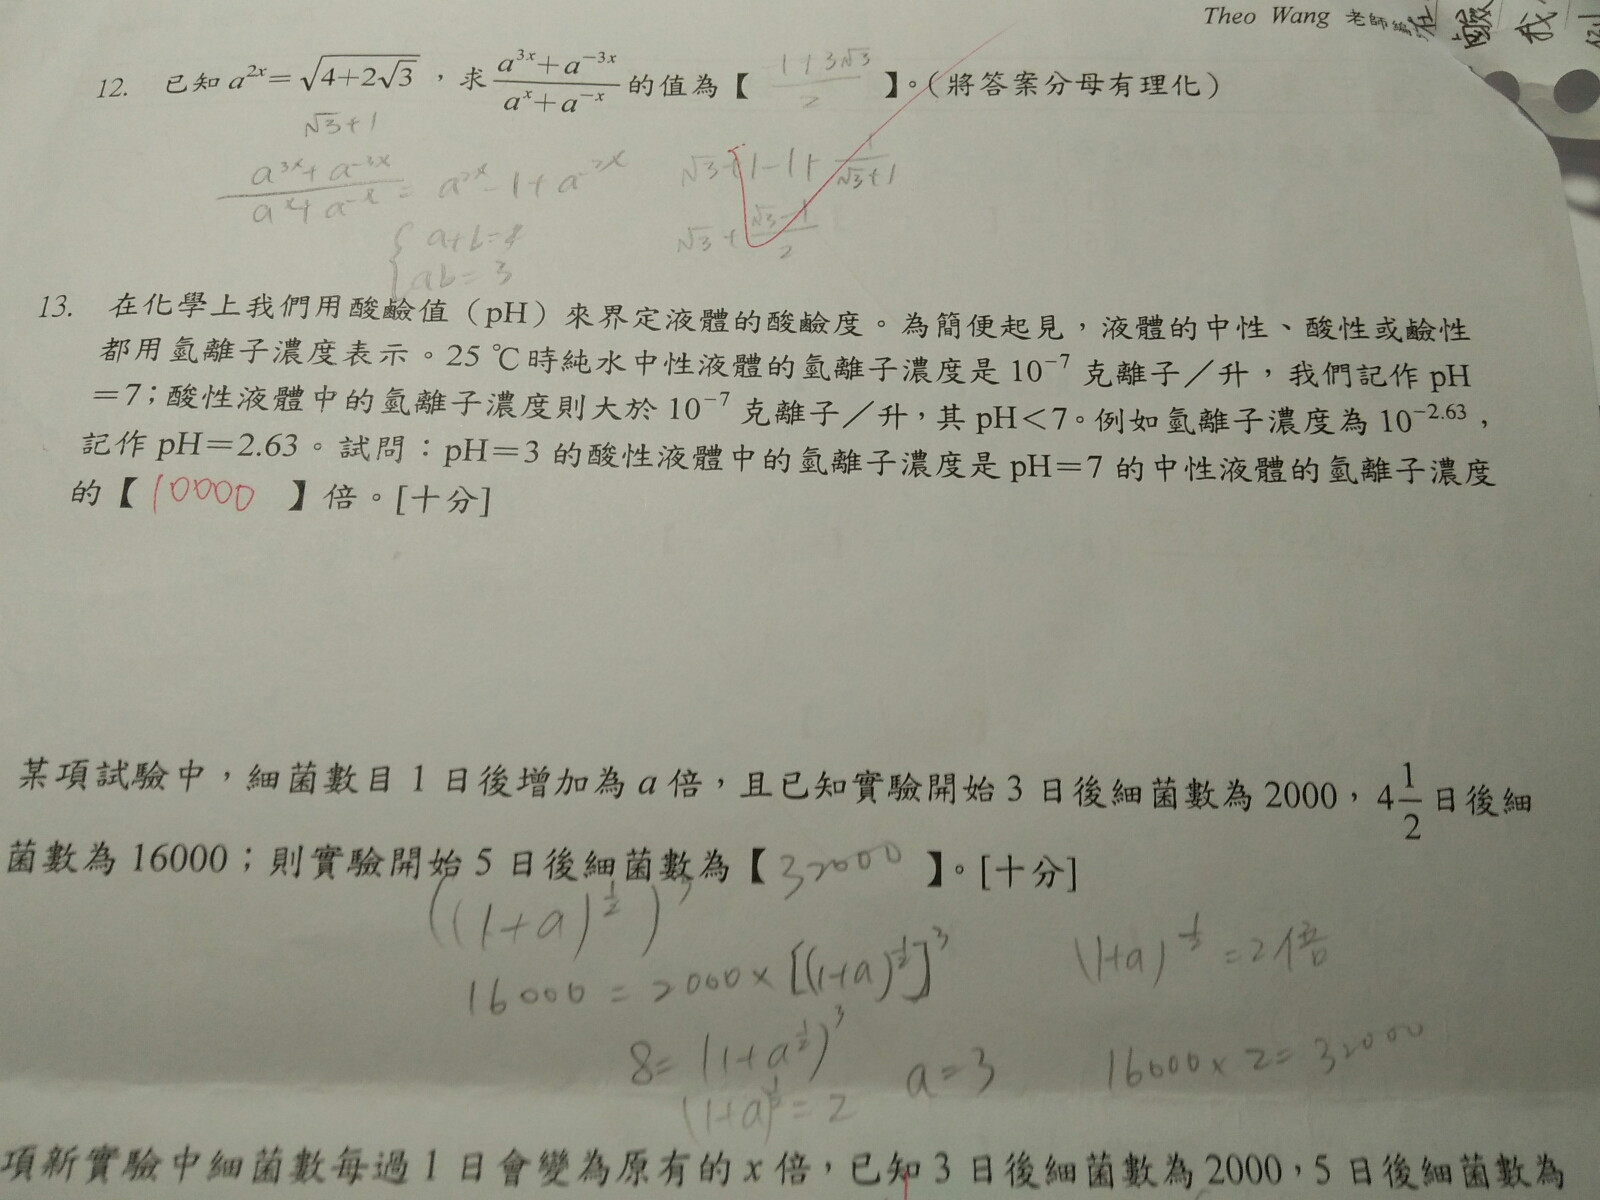 Theo Wang 老師編
12. 已知 a^{2x}=√(4+2√3)，求 (a^{3x}+a^{-3x})/(a^x+a^{-x}) 的值為【 (1+3√3)/2 】。(將答案分母有理化)
√3+1
(a^{3x}+a^{-3x})/(a^x+a^{-x}) = a^{2x}-1+a^{-2x}
√3+1-1+1/(√3+1)
{a+b=4
ab=3
√3+(√3-1)/2
13. 在化學上我們用酸鹼值（pH）來界定液體的酸鹼度。為簡便起見，液體的中性、酸性或鹼性
都用氫離子濃度表示。25 ℃時純水中性液體的氫離子濃度是 10^{-7} 克離子／升，我們記作 pH
=7；酸性液體中的氫離子濃度則大於 10^{-7} 克離子／升，其 pH<7。例如氫離子濃度為 10^{-2.63}，
記作 pH=2.63。試問：pH=3 的酸性液體中的氫離子濃度是 pH=7 的中性液體的氫離子濃度
的【 10000 】倍。[十分]
某項試驗中，細菌數目 1 日後增加為 a 倍，且已知實驗開始 3 日後細菌數為 2000，4 1/2 日後細
菌數為 16000；則實驗開始 5 日後細菌數為【 32000 】。[十分]
((1+a)^{1/2})^3
16000 = 2000×[(1+a)^{1/2}]^3
(1+a)^{1/2} =2倍
8= (1+a^{1/2})^3
a=3
16000×2=32000
(1+a)^{1/2} = 2
項新實驗中細菌數每過 1 日會變為原有的 x 倍，已知 3 日後細菌數為 2000，5 日後細菌數為